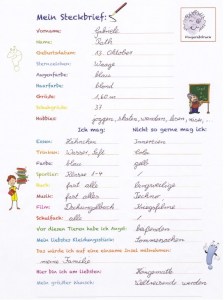 Mein Steckbrief:
Vorname: Gabriele
Name: Roth
Geburtsdatum: 13. Oktober
Sternzeichen: Waage
Augenfarbe: blau
Haarfarbe: blond
Größe: 1,60 m
Schuhgröße: 37
Hobbies: joggen, skaten, wandern, lesen,
Ich mag: Nicht so gerne mag ich:
Essen: Hähnchen Innereien
Trinken: Wasser, Saft Cola
Farbe: blau gelb
Klasse 1-4 /
Buch: fast alle langweilige
Musik: fast alle Techno
Film: Dschungelbuch Kriegsfilme
Schulfach: alle /
Vor diesen Tieren habe ich Angst: beißenden
Mein liebstes Kleidungsstück: Sommersachen
Das würde ich auf eine einsame Insel mitnehmen:
meine Familie
Hier bin ich am liebsten:
Mein größter Wunsch: Weltreisend werden